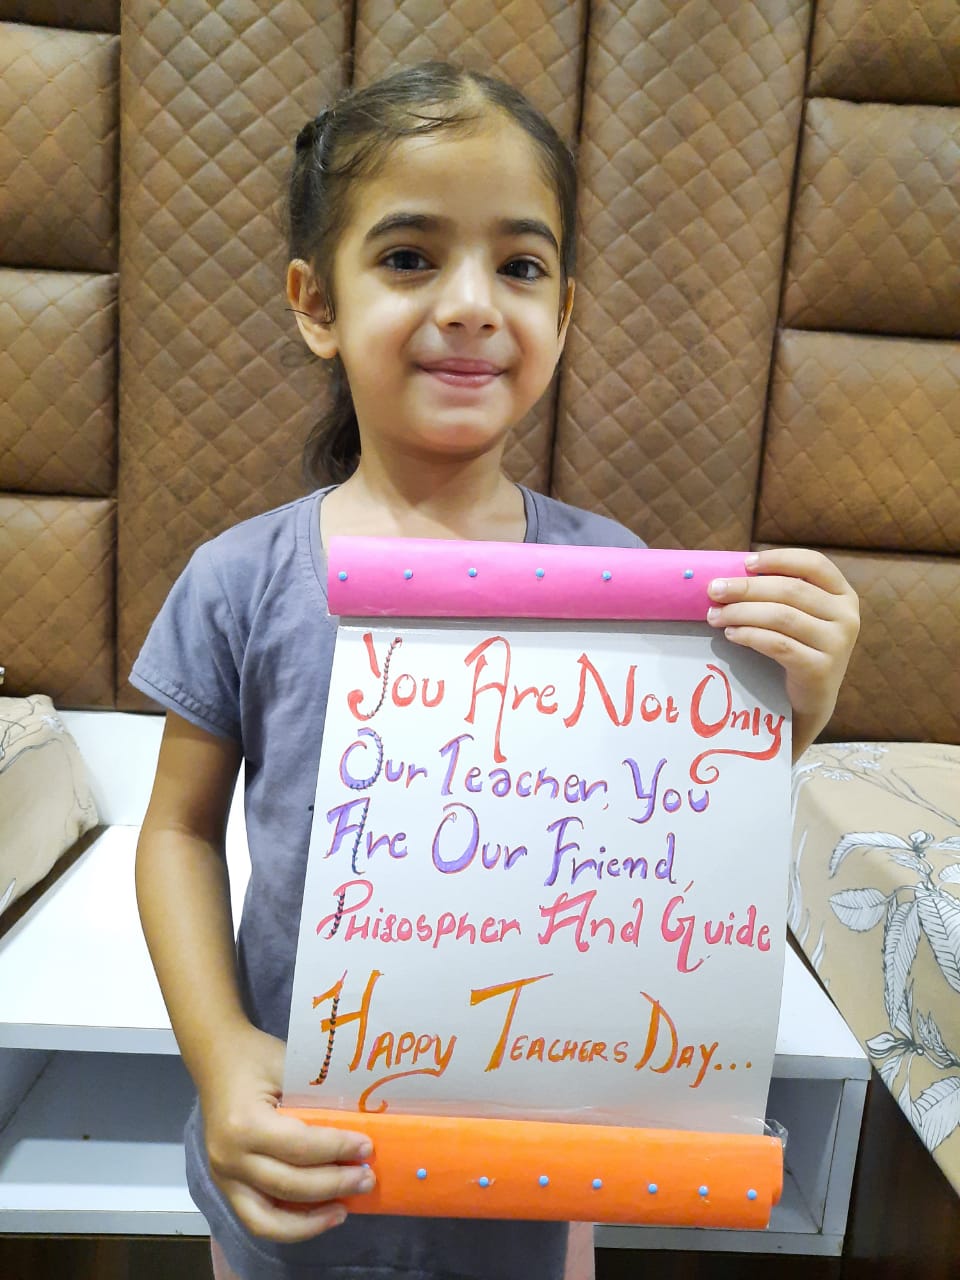 You Are Not Only
Our Teacher, You
Are Our Friend,
Philospher And Guide
Happy Teachers Day...